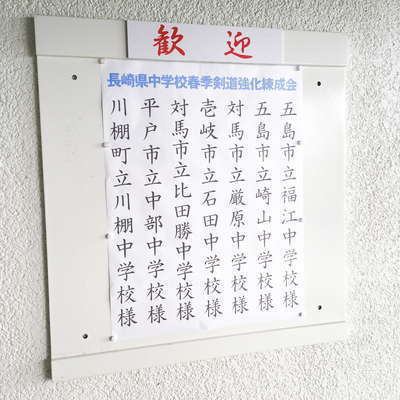 歓迎
長崎県中学校春季剣道強化練成会
五島市立福江中学校様
五島市立崎山中学校様
対馬市立厳原中学校様
壱岐市立石田中学校様
対馬市立比田勝中学校様
平戸市立中部中学校様
川棚町立川棚中学校様